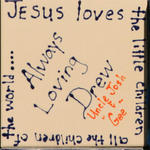 JESUS loves
the little children
all the children of
the world....
Always
Loving
Drew
Uncle Josh
&
Gee -